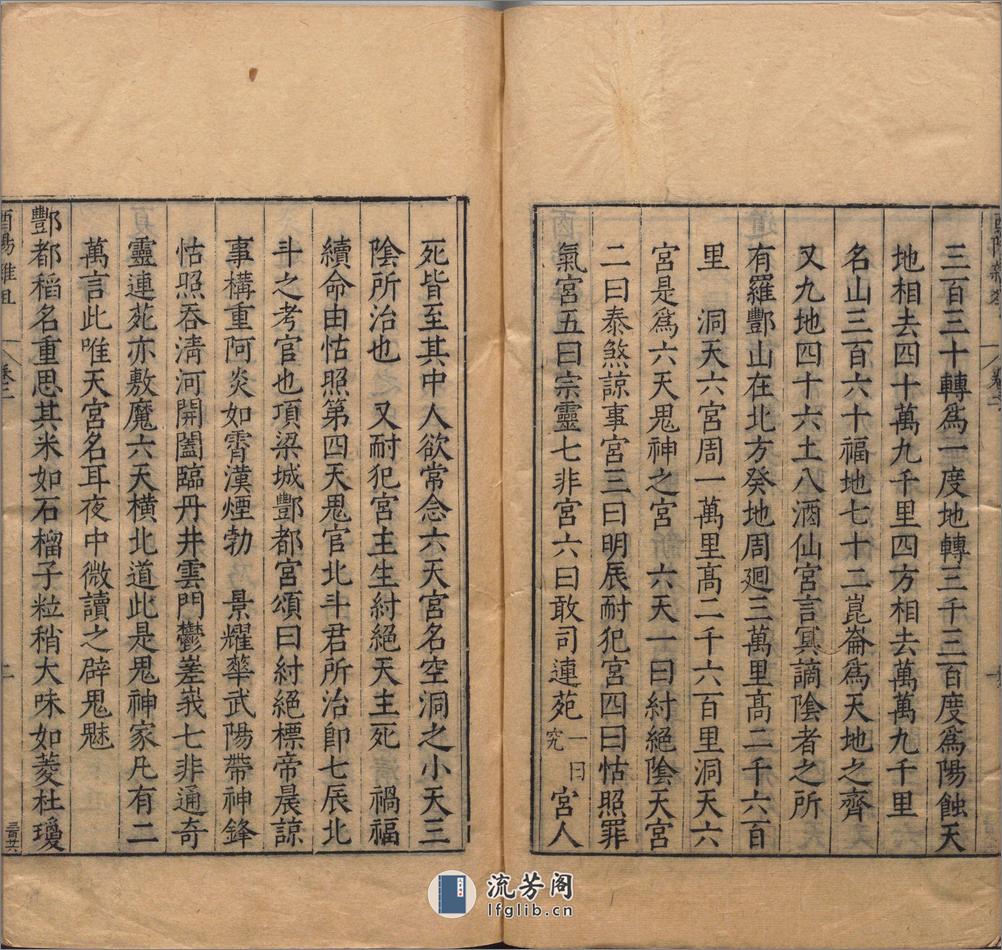 三百三十轉爲一度地轉三千三百度爲陽蝕天
地相去四十萬九千里四方相去萬萬九千里
名山三百六十福地七十二崑崙爲天地之齊
又九地四十六土八酒仙宮言冥謫陰者之所
有羅酆山在北方癸地周廻三萬里髙二千六百
里　洞天六宮周一萬里髙二千六百里洞天六
宮是爲六天鬼神之宮　六天一曰紂絕陰天宮
二曰泰煞諒事宮三曰明辰耐犯宮四曰怙照罪
氣宮五曰宗靈七非宮六曰敢司連苑一曰究宮人
死皆至其中人欲常念六天宮名空洞之小天三
陰所治也　又耐犯宮主生紂絕天主死　禍福
續命由怙照第四天鬼官北斗君所治即七辰北
斗之考官也項梁城酆都宮頌曰紂絕標帝晨諒
事構重阿炎如霄漢煙勃　景耀華武陽帶神鋒
怙照吞清河開闔臨丹井雲門鬱嵳峩七非通奇
靈連苑亦敷魔六天横北道此是鬼神家凡有二
萬言此唯天宮名耳夜中微讀之辟鬼魅
酆都稻名重思其米如石榴子粒稍大味如菱杜瓊
酉陽雜俎
卷二
二
流芳阁
lfglib.cn